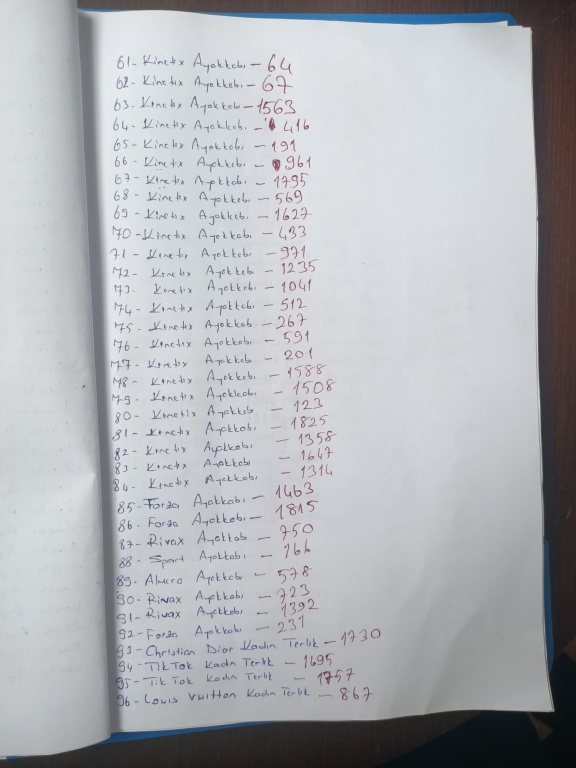 61- Kinetix Ayakkabı - 64
62- Kinetix Ayakkabı - 67
63- Kinetix Ayakkabı - 1563
64- Kinetix Ayakkabı - 416
65- Kinetix Ayakkabı - 191
66- Kinetix Ayakkabı - 961
67- Kinetix Ayakkabı - 1795
68- Kinetix Ayakkabı - 569
69- Kinetix Ayakkabı - 1627
70- Kinetix Ayakkabı - 433
71- Kinetix Ayakkabı - 971
72- Kinetix Ayakkabı - 1235
73- Kinetix Ayakkabı - 1041
74- Kinetix Ayakkabı - 512
75- Kinetix Ayakkabı - 267
76- Kinetix Ayakkabı - 591
77- Kinetix Ayakkabı - 201
78- Kinetix Ayakkabı - 1588
79- Kinetix Ayakkabı - 1508
80- Kinetix Ayakkabı - 123
81- Kinetix Ayakkabı - 1825
82- Kinetix Ayakkabı - 1358
83- Kinetix Ayakkabı - 1647
84- Kinetix Ayakkabı - 1314
85- Forza Ayakkabı - 1463
86- Forza Ayakkabı - 1815
87- Rivax Ayakkabı - 750
88- Sport Ayakkabı - 166
89- Ayakkabı - 578
90- Rivax Ayakkabı - 723
91- Rivax Ayakkabı - 1392
92- Forza Ayakkabı - 231
93- Christian Dior Kadın Terlik - 1730
94- TikTok Kadın Terlik - 1695
95- Tik Tok Kadın Terlik - 1757
96- Louis Vuitton Kadın Terlik - 867